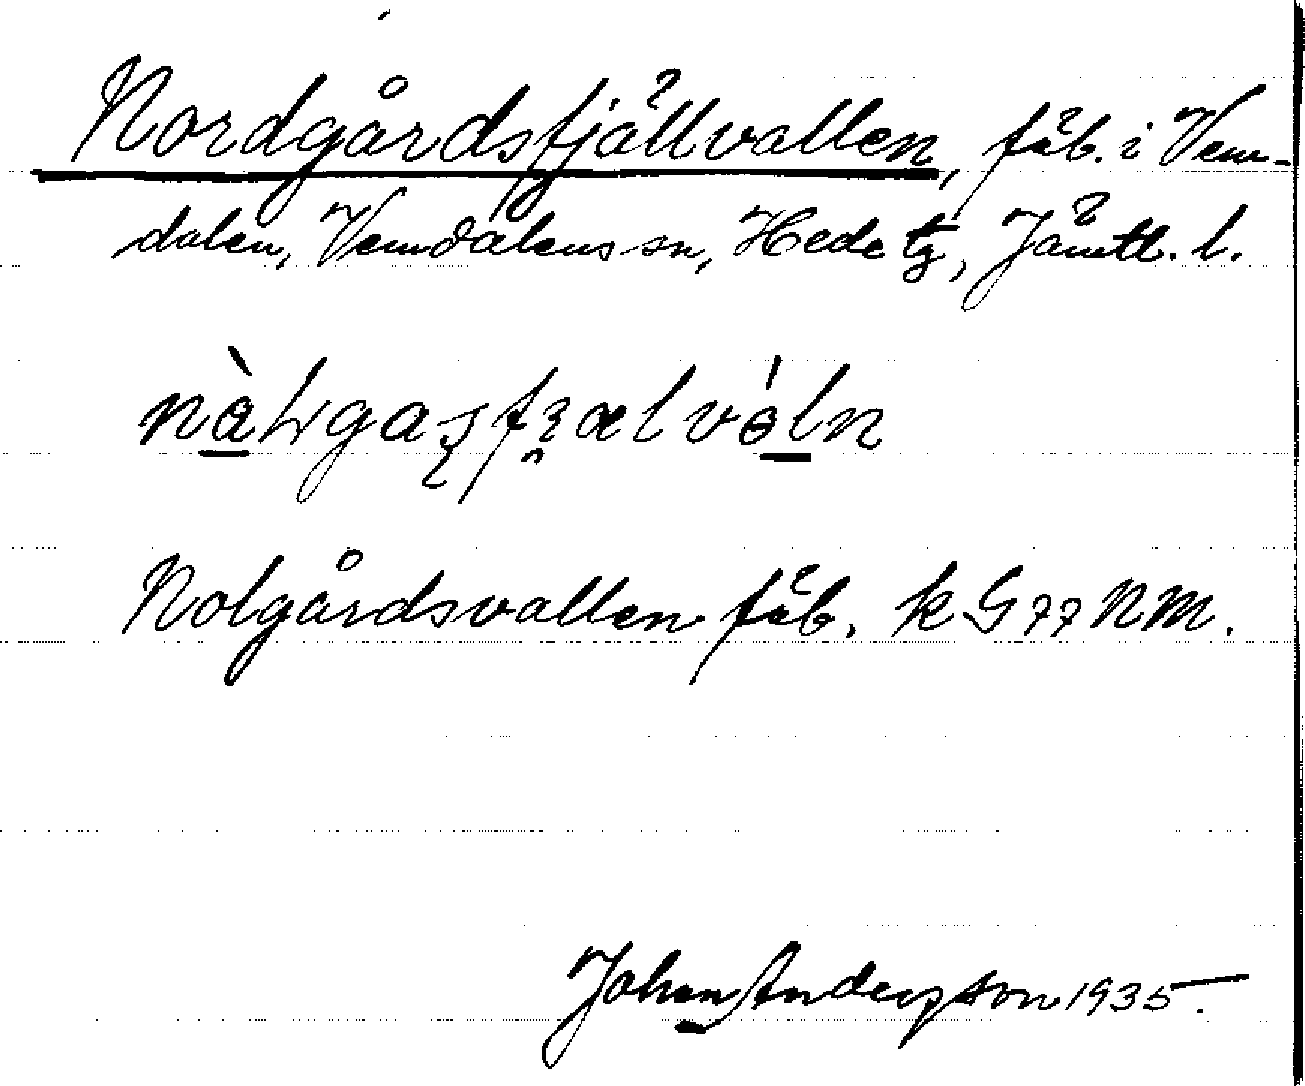 Nordgårdsfjällvallen, fäb. i Vem-
dalen, Vemdalens sn, Hede tg, Jämtl. l.
Nolgårdsvallen fäb. k G77 NM.
Johan Andersson 1935.